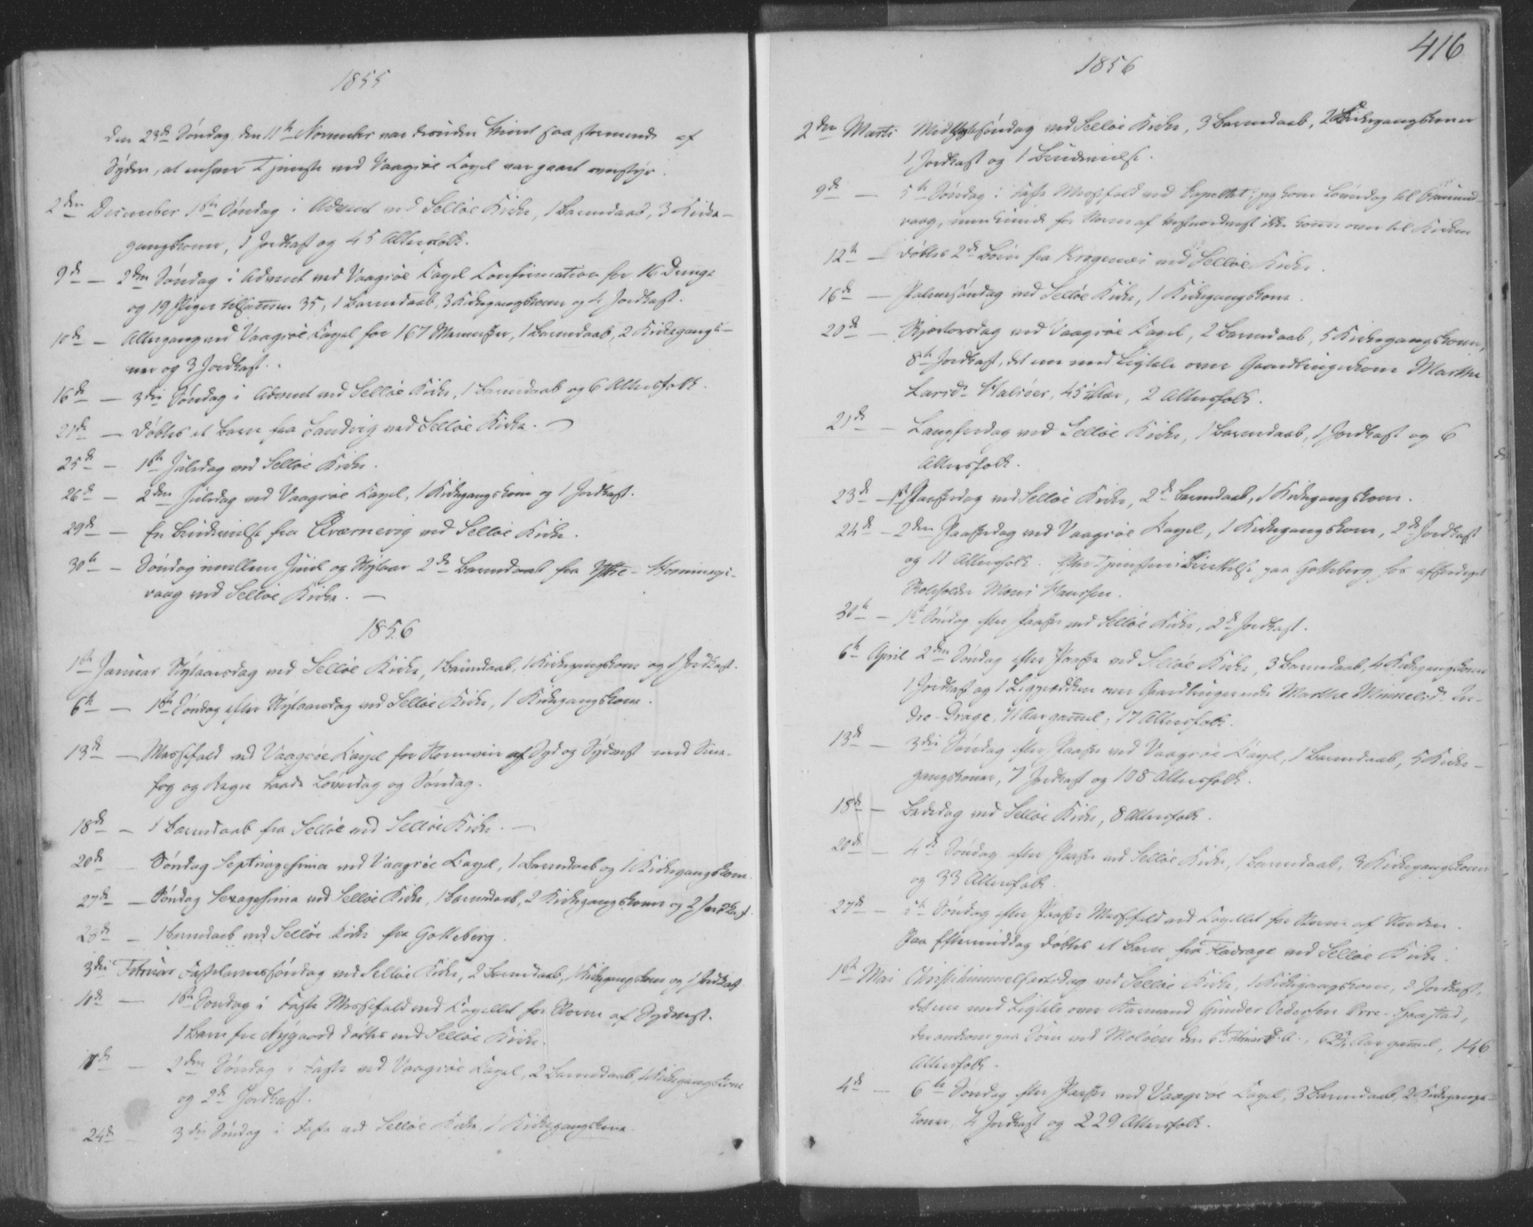 1855
den 23de Søndag den 11te November var Vinden saa stormende af
Syden, at enhver Tjeneste ved Vaagsøe Capel var gjort overstyr.
2den December 1ste Søndag i Advent ved Selløe Kirke, 1 Barnedaab, 3 Kirke-
gangskoner, 1 Jordkast og 45 Altersfolk.
9de — 2den Søndag i Advent ved Vaagsøe Capel Confirmation for 16 Drenge
og 19 Piger tilsammen 35, 1 Barnedaab, 3 Kirkegangskoner og 4 Jordkast.
10de — Altergang ved Vaagsøe Capel for 167 Mennesker, 1 Barnedaab, 2 Kirkegangsko-
ner og 3 Jordkast.
16de — 3die Søndag i Advent ved Selløe Kirke, 1 Barnedaab og 6 Altersfolk.
21de — Døbtes et Barn fra Sandvig ved Selløe Kirke.
25de — 1ste Juledag ved Selløe Kirke.
26de — 2den Juledag ved Vaagsøe Capel, 1 Kirkegangskone og 1 Jordkast.
29de — En Brudevielse fra Qværnevig ved Selløe Kirke.
30te — Søndag imellem Juul og Nytaar 2de Barnedaab fra Yttre-
vaag ved Selløe Kirke. —
1856
1ste Januar Nytaarsdag ved Selløe Kirke, 1 Barnedaab, 1 Kirkegangskone og 1 Jordkast.
6te — 1ste Søndag efter Nytaarsdag ved Selløe Kirke, 1 Kirkegangskone.
13de — Messefald ved Vaagsøe Capel for Storm af Syd og Sydvest med Snee-
fog og Regn baade Løverdag og Søndag.
18de — 1 Barnedaab fra Selløe ved Selløe Kirke. —
20de — Søndag Septuagesima ved Vaagsøe Capel, 1 Barnedaab og 1 Kirkegangskone.
27de — Søndag Sexagesima ved Selløe Kirke, 1 Barnedaab, 2 Kirkegangskoner og 2 Jordkast.
28de — 1 Barnedaab ved Selløe Kirke fra Golteberg.
3die Februar Fastelavnssøndag ved Selløe Kirke, 2 Barnedaab, 1 Kirkegangskone og 1 Jordkast
— 1ste Søndag i Faste Messefald ved Capellet for Storm af Sydvest.
1 Barn fra Nygaard døbtes ved Selløe Kirke.
— 2den Søndag i Faste ved Vaagsøe Capel, 2 Barnedaab, 1 Kirkegangskone
og 2de Jordkast.
24de — 3die Søndag i Faste ved Selløe Kirke, 1 Kirkegangskone.
416
1856
2den Marts Midfastesøndag ved Selløe Kirke, 3 Barnedaab, 2 Kirkegangskoner
1 Jordkast og 1 Brudevielse.
9de — 5te Søndag i Faste Messefald ved Capellet; jeg kom Løverdag til
vaag, men kunde for Storm af Nordvest ikke komme over til Kirken
12te — Døbtes 2de Børn fra ved Selløe Kirke.
16de — Palmesøndag ved Selløe Kirke, 1 Kirkegangskone.
20de — Skjertorsdag ved Vaagsøe Capel, 2 Barnedaab, 5 Kirkegangskoner,
8te Jordkast, det ene med Ligtale over Gaardbrugerkone Marthe
Larsd. 45 Aar, 2 Altersfolk.
21de — Langfredag ved Selløe Kirke, 1 Barnedaab, 1 Jordkast og 6
Altersfolk.
23de — 1ste Paaskedag ved Selløe Kirke, 2de Barnedaab, 1 Kirkegangskone.
24de — 2den Paaskedag ved Vaagsøe Capel, 1 Kirkegangskone, 2de Jordkast
og 11 Altersfolk. Efter Tjenesten paa Golteberg for
Skoleholder Mons Hanssen.
30te — 1ste Søndag efter Paaske ved Selløe Kirke, 2de Jordkast.
6te April 2den Søndag efter Paaske ved Selløe Kirke, 3 Barnedaab, 4 Kirkegangskoner
1 Jordkast og 1 Ligprædiken over Gaardbrugerenke Marthe Mikkelsd. In-
dre-Drage, 71 Aar gammel, 17 Altersfolk.
13de — 3die Søndag efter Paaske ved Vaagsøe Capel, 1 Barnedaab, 5 Kirke-
gangskoner, 7 Jordkast og 108 Altersfolk.
18de — Bededag ved Selløe Kirke, 8 Altersfolk.
20de — 4de Søndag efter Paaske ved Selløe Kirke, 1 Barnedaab, 3 Kirkegangskoner
og 33 Altersfolk.
27de — 5te Søndag efter Paaske Messefald ved Capellet for Storm af Norden.
Paa Eftermiddag døbtes et Barn fra Fladrage ved Selløe Kirke.
1ste Mai Christi Himmelfartsdag ved Selløe Kirke, 1 Kirkegangskone, 2 Jordkast,
det ene med Ligtale over Gunder Pedersen
der omkom paa Søen ved Moløen den 6te Februar d. A., 62 Aar gammel, 146
Altersfolk.
4de — 6te Søndag efter Paaske ved Vaagsøe Capel, 3 Barnedaab, 2 Kirkegangs-
koner, 4 Jordkast og 229 Altersfolk.